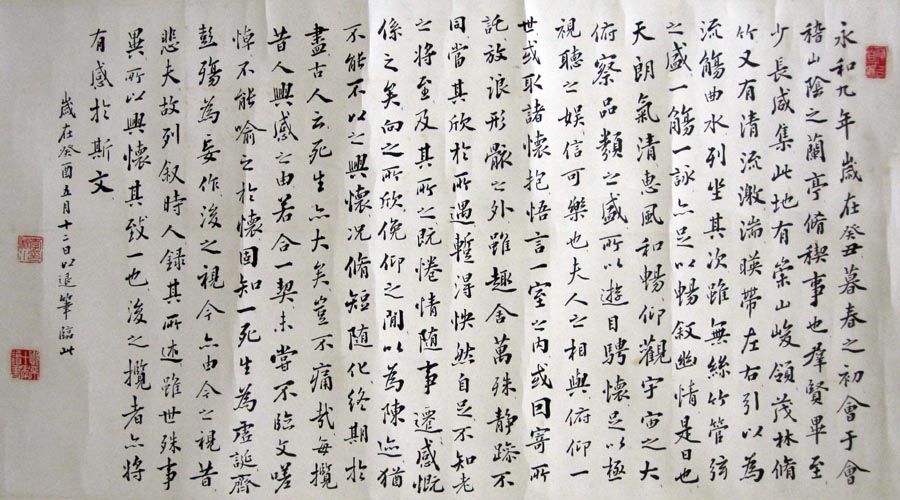 永和九年歲在癸丑暮春之初會于會
稽山陰之蘭亭脩稧事也羣賢畢至
少長咸集此地有崇山峻領茂林脩
竹又有清流激湍暎帶左右引以為
流觴曲水列坐其次雖無絲竹管弦
之盛一觴一詠亦足以暢叙幽情是日也
天朗氣清惠風和暢仰觀宇宙之大
俯察品類之盛所以遊目騁懷足以極
視聽之娛信可樂也夫人之相與俯仰一
世或取諸懷抱悟言一室之內或因寄所
託放浪形骸之外雖趣舍萬殊靜躁不
同當其欣於所遇暫得怏然自足不知老
之將至及其所之既惓情隨事遷感慨
係之矣向之所欣俛仰之閒以為陳迹猶
不能不以之興懷況脩短隨化終期於
盡古人云死生亦大矣豈不痛哉每攬
昔人興感之由若合一契未嘗不臨文嗟
悼不能喻之於懷固知一死生為虛誕齊
彭殤為妄作後之視今亦由今之視昔
悲夫故列叙時人錄其所述雖世殊事
異所以興懷其致一也後之攬者亦將
有感於斯文
歲在癸酉五月十二日以退筆臨此